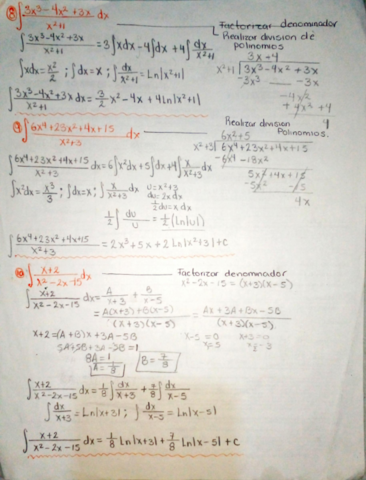 ⑧ ∫ 3x³-4x²+3x / x²+1 dx Factorizar denominador
∫ 3x³-4x²+3x / x²+1 = 3∫xdx - 4∫dx + 4∫ dx / x²+1 Realizar division de polinomios
3x-4
x²+1 | 3x³-4x²+3x
-3x³ -3x
-4x²
+4x²+4
4
∫xdx = x²/2 ; ∫dx = x ; ∫ dx / x²+1 = Ln|x²+1|
∫ 3x³-4x²+3x dx / x²+1 = 3/2 x² - 4x + 4Ln|x²+1|
⑨ ∫ 6x⁴+23x²+4x+15 / x²+3 dx Realizar division Polinomios.
6x²+5
x²+3 | 6x⁴+23x²+4x+15
-6x⁴-18x²
5x²+4x+15
-5x² -15
4x
∫ 6x⁴+23x²+4x+15 / x²+3 dx = 6∫x²dx + 5∫dx + 4∫ x / x²+3 dx
∫x²dx = x³/3 ; ∫dx = x ; ∫ x / x²+3 dx u=x²+3
du=2xdx
½du=xdx
½∫ du / u = ½(Ln|u|)
∫ 6x⁴+23x²+4x+15 / x²+3 = 2x³+5x+2Ln|x²+3|+C
⑩ ∫ x+2 / x²-2x-15 dx Factorizar denominador
x²-2x-15 = (x+3)(x-5)
∫ x+2 / x²-2x-15 dx = A / x+3 + B / x-5
= A(x+3)+B(x-5) / (x+3)(x-5) = Ax+3A+Bx-5B / (x+3)(x-5)
x+2=(A+B)x+3A-5B
x-5=0 x+3=0
x=5 x=-3
8A=1
A=1/8 B=7/8
∫ x+2 / x²-2x-15 dx = 1/8 ∫ dx / x+3 + 7/8 ∫ dx / x-5
∫ dx / x+3 = Ln|x+3| ; ∫ dx / x-5 = Ln|x-5|
∫ x+2 / x²-2x-15 dx = 1/8 Ln|x+3| + 7/8 Ln|x-5| + C